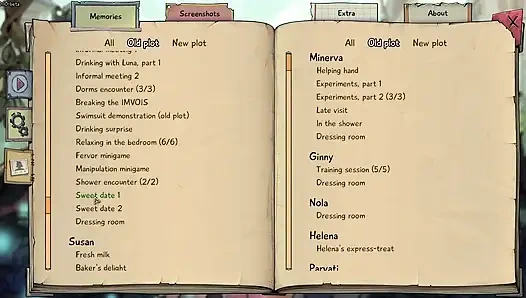 Memories
Screenshots
Extra
About
All Old plot New plot
Informal meeting 1
Drinking with Luna, part 1
Informal meeting 2
Dorms encounter (3/3)
Breaking the IMVOIS
Swimsuit demonstration (old plot)
Drinking surprise
Relaxing in the bedroom (6/6)
Fervor minigame
Manipulation minigame
Shower encounter (2/2)
Sweet date 1
Sweet date 2
Dressing room
Susan
Fresh milk
Baker's delight
All Old plot New plot
Minerva
Helping hand
Experiments, part 1
Experiments, part 2 (3/3)
Late visit
In the shower
Dressing room
Ginny
Training session (5/5)
Dressing room
Nola
Dressing room
Helena
Helena's express-treat
Parvati